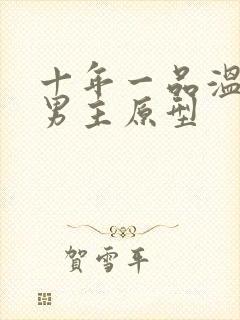 十年一品温
男主原型
賀雪平